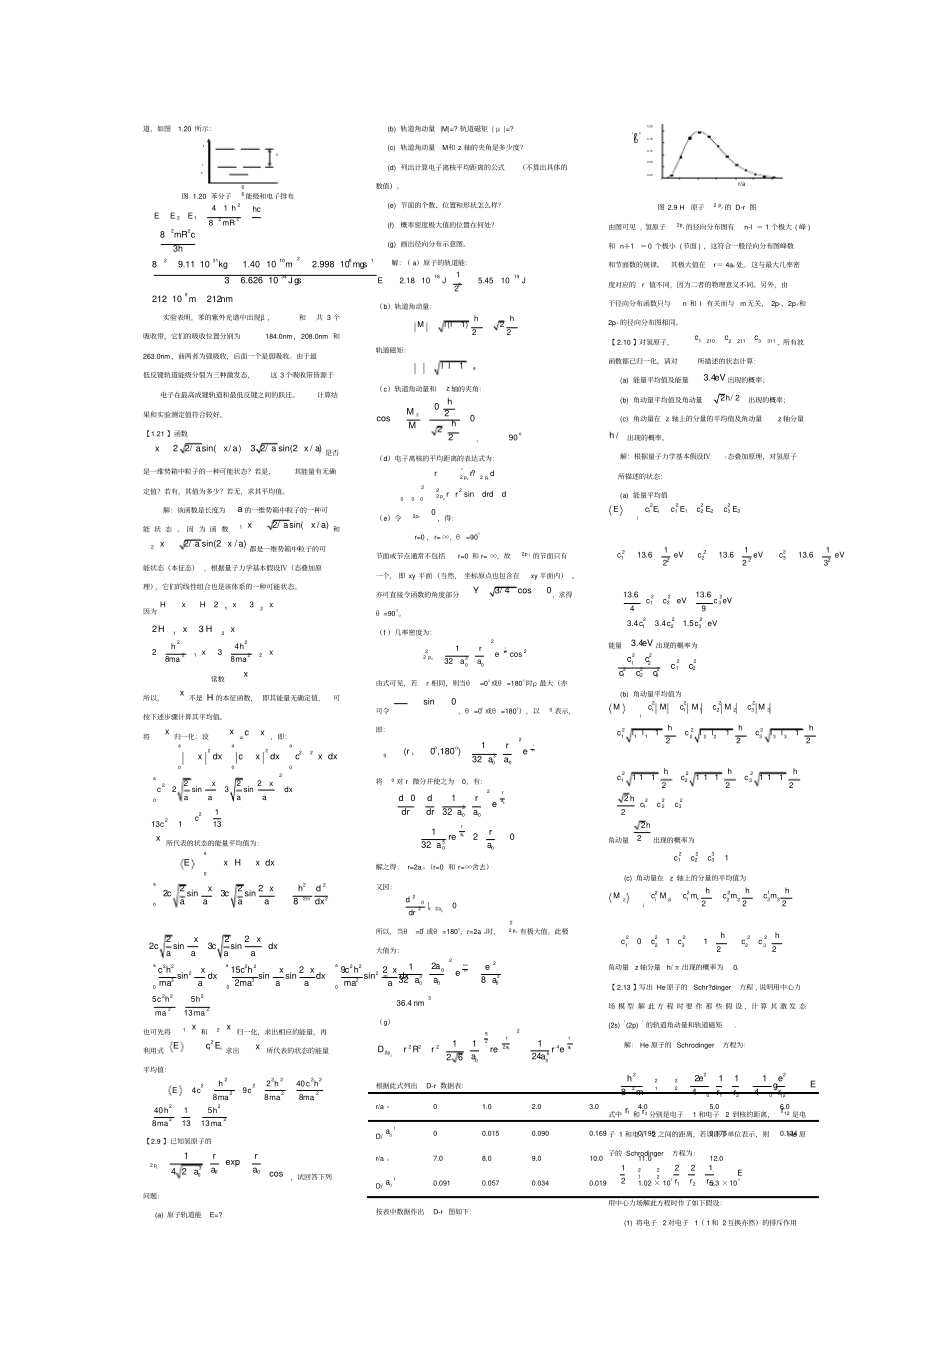 道，如图 1.20 所示：
6
图 1.20 苯分子 6 能级和电子排布
E E2 E1 4 1 h2 hc
8 2mR2
8 2mR2c
3h
8 2 9.11 10 31kg 1.40 10 10m 2 2.998 108mgs 1
3 6.626 10 34Jgs
212 10 9m 212nm
实验表明，苯的紫外光谱中出现β ， 和 共 3 个
吸收带，它们的吸收位置分别为 184.0nm，208.0nm 和
263.0nm，前两者为强吸收，后面一个是弱吸收。由于最
低反键轨道能级分裂为三种激发态， 这 3个吸收带皆源于
电子在最高成键轨道和最低反键之间的跃迁。 计算结
果和实验测定值符合较好。
【1.21】函数
x 2 √2/a sin( x/a) 3 √2/a sin(2 x/a) 是否
是一维势箱中粒子的一种可能状态？若是， 其能量有无确
定值？若有，其值为多少？若无，求其平均值。
解：该函数是长度为 a 的一维势箱中粒子的一种可
能 状 态 。 因 为 函 数 1 x √2/a sin( x/a) 和
2 x √2/a sin(2 x/a) 都是一维势箱中粒子的可
能状态（本征态） ，根据量子力学基本假设Ⅳ（态叠加原
理），它们的线性组合也是该体系的一种可能状态。
因为 H x H 2 1 x 3 2 x
2H 1 x 3H 2 x
2 h2/8ma2 1 x 3 4h2/8ma2 2 x
常数 x
所以， x 不是 H 的本征函数， 即其能量无确定值， 可
按下述步骤计算其平均值。
将 x 归一化：设 x =c x ，即：
a 0 x 2 dx a 0 c x 2 dx a 0 c2 2 x dx
a 0 c2 2 √2/a sin x/a 3 √2/a sin 2 x/a 2 dx
13c2 1 c2 1/13
x 所代表的状态的能量平均值为：
〈E〉 a 0 x H x dx
a 0 2c √2/a sin x/a 3c √2/a sin 2 x/a h2/8 2m d2/dx2
2c √2/a sin x/a 3c √2/a sin 2 x/a dx
a 0 c2h2/ma2 sin2 x/a dx a 0 15c2h2/2ma2 sin x/a sin 2 x/a dx a 0 9c2h2/ma2 sin2 2 x/a dx
5c2h2/ma2 5h2/13ma2
也可先将 1 x 和 2 x 归一化，求出相应的能量，再
利用式 〈E〉 ci2Ei 求出 x 所代表的状态的能量
平均值：
〈E〉 4c2 h2/8ma2 9c2 22h2/8ma2 40c2h2/8ma2
40h2/8ma2 1/13 5h2/13ma2
【2.9】已知氢原子的
2pz 1/4√2 a03 r/a0 exp r/a0 cos ，试回答下列
问题：
(a) 原子轨道能 E=?
(b) 轨道角动量 |M|=? 轨道磁矩 |μ|=?
(c) 轨道角动量 M和 z 轴的夹角是多少度？
(d) 列出计算电子离核平均距离的公式 （不算出具体的
数值）。
(e) 节面的个数，位置和形状怎么样？
(f) 概率密度极大值的位置在何处？
(g) 画出径向分布示意图。
解：（a）原子的轨道能：
E 2.18 10 18 J 1/22 5.45 10 19 J
（b）轨道角动量：
|M| √l(l 1) h/2 √2 h/2
轨道磁矩：
| | √l l 1 e
（c）轨道角动量和 z 轴的夹角：
cos Mz/M 0 h/2 / √2 h/2 0 ， 90°
（d）电子离核的平均距离的表达式为：
r 2pz r? 2pz d
2 0 0 0 2 2pz r r2 sin drd d
（e）令 2pz 0 ，得：
r=0，r=∞，θ=90°
节面或节点通常不包括 r=0 和 r=∞，故 2pz 的节面只有
一个，即 xy 平面（当然， 坐标原点也包含在 xy 平面内） 。
亦可直接令函数的角度部分 Y √3/4 cos 0 ，求得
θ=90°。
（f）几率密度为：
2 2pz 1/32 a03 r/a0 2 e cos2
由式可见，若 r 相同，则当θ =0°或θ=180°时ρ最大（亦
可令 sin 0 ，θ=0°或θ=180°），以 0 表示，
即：
0 (r， 0°,180°) 1/32 a03 r/a0 2 e
将 0 对 r 微分并使之为 0，有：
d 0/dr d/dr 1/32 a03 r/a0 2 e r/a0
1/32 a05 re r/a0 2 r/a0 0
解之得： r=2a0（r=0 和 r=∞舍去）
又因：
d2 0/dr2 |r 2a0 0
所以，当θ =0°或θ=180°，r=2a0时， 2 2pz 有极大值。此极
大值为：
1/32 a03 2a0/a0 2 e e 2/8 a03
36.4nm 3
（g）
D2pz r2R2 r2 1/2√6 1/a0 5/2 re r/2a0 2 1/24a05 r4e r/a0
根据此式列出 D-r 数据表：
r/a0 0 1.0 2.0 3.0 4.0 5.0 6.0
D/a0 1 0 0.015 0.090 0.169 0.195 0.175 0.134
r/a0 7.0 8.0 9.0 10.0 11.0 12.0
D/a0 1 0.091 0.057 0.034 0.019 1.02×10 5.3×10
按表中数据作出 D-r 图如下：
0.20
0.15
0.10
0.05
0.00
r/a
图 2.9 H 原子 2pz 的 D-r 图
由图可见，氢原子 2pz 的径向分布图有 n-l ＝1 个极大（峰）
和 n-l-1 ＝0 个极小（节面），这符合一般径向分布图峰数
和节面数的规律。 其极大值在 r＝4a0处。这与最大几率密
度对应的 r 值不同，因为二者的物理意义不同。另外，由
于径向分布函数只与 n 和 l 有关而与 m无关， 2px、2py和
2pz 的径向分布图相同。
【2.10】对氢原子， c1 210 c2 211 c3 311 ，所有波
函数都已归一化。请对 所描述的状态计算：
(a) 能量平均值及能量 3.4eV 出现的概率；
(b) 角动量平均值及角动量 √2h/2 出现的概率；
(c) 角动量在 z 轴上的分量的平均值及角动量 z轴分量
h/ 出现的概率。
解：根据量子力学基本假设Ⅳ -态叠加原理，对氢原子
所描述的状态：
(a) 能量平均值
〈E〉 i ci2Ei c12E1 c22E2 c32E3
c12 13.6 1/22 eV c22 13.6 1/22 eV c32 13.6 1/32 eV
13.6/4 c12 c22 eV 13.6/9 c32eV
3.4c12 3.4c22 1.5c32 eV
能量 3.4eV 出现的概率为
c12 c22 / c12 c22 c32 c12 c22
(b) 角动量平均值为
〈M〉 i ci2 |M| c12 |M1| c22 |M2| c32 |M3|
c12 √l1 l1 1 h/2 c22 √l2 l2 1 h/2 c32 √l3 l3 1 h/2
c12 √1 1 1 h/2 c22 √1 1 1 h/2 c32 √1 1 1 h/2
√2h/2 c12 c22 c32
角动量 √2h/2 出现的概率为
c12 c22 c32 1
(c) 角动量在 z 轴上的分量的平均值为
〈Mz〉 i ci2Mzi c12m1 h/2 c22m2 h/2 c32m3 h/2
c12 0 c22 1 c32 1 h/2 c22 c32 h/2
角动量 z轴分量 h/π出现的概率为 0。
【2.13】写出 He原子的 Schr?dinger 方程，说明用中心力
场 模 型 解 此 方 程 时 要 作 那 些 假 设 ， 计 算 其 激 发 态
(2s)1(2p)1 的轨道角动量和轨道磁矩 .
解： He 原子的 Schrodinger 方程为：
h2/8 2m 2 1 2 2 2e2/4 0 1/r1 1/r2 1/4 0 g e2/r12 E
式中 r1 和 r2 分别是电子 1和电子 2 到核的距离， r12 是电
子 1和电子 2 之间的距离，若以原子单位表示，则 He 原
子的 Schrodinger 方程为：
1/2 2 1 2 2 2/r1 2/r2 1/r12 E
用中心力场解此方程时作了如下假设：
(1) 将电子 2对电子 1（1和 2互换亦然）的排斥作用